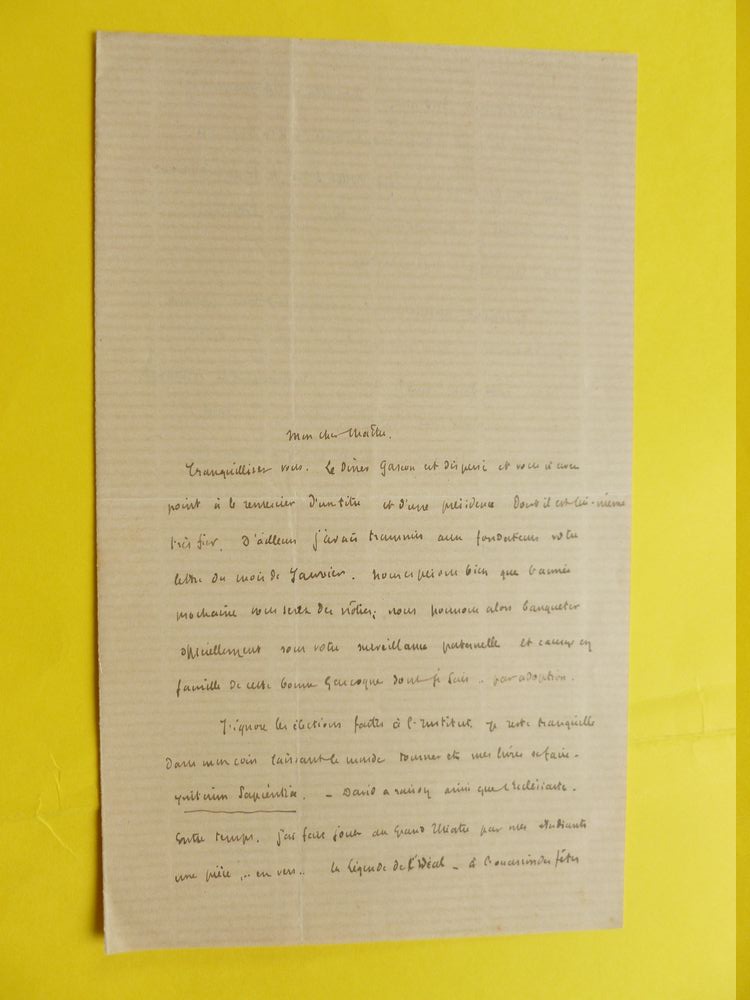 Mon cher Maître.
Tranquillisez vous. Le Dîner Gascon est dispersé et vous n'avez
point à le remercier d'un titre et d'une présidence dont il est lui-même
très fier. D'ailleurs j'avais transmis aux fondateurs votre
lettre du mois de Janvier. Nous espérons bien que l'année
prochaine vous serez des nôtres; nous pourrons alors banqueter
officiellement sous votre surveillance paternelle et causer en
famille de cette bonne Gascogne dont je suis .. par adoption.
J'ignore les élections faites à l'Institut. Je reste tranquille
dans mon coin laissant le monde tourner et mes livres se faire.
Initium Sapientiæ. — David a raison ainsi que l'Ecclésiaste.
Entre temps, j'ai fait jouer au Grand Théâtre par mes étudiants
une pièce ... en vers.. la Légende de l'Idéal — à l'occasion des fêtes